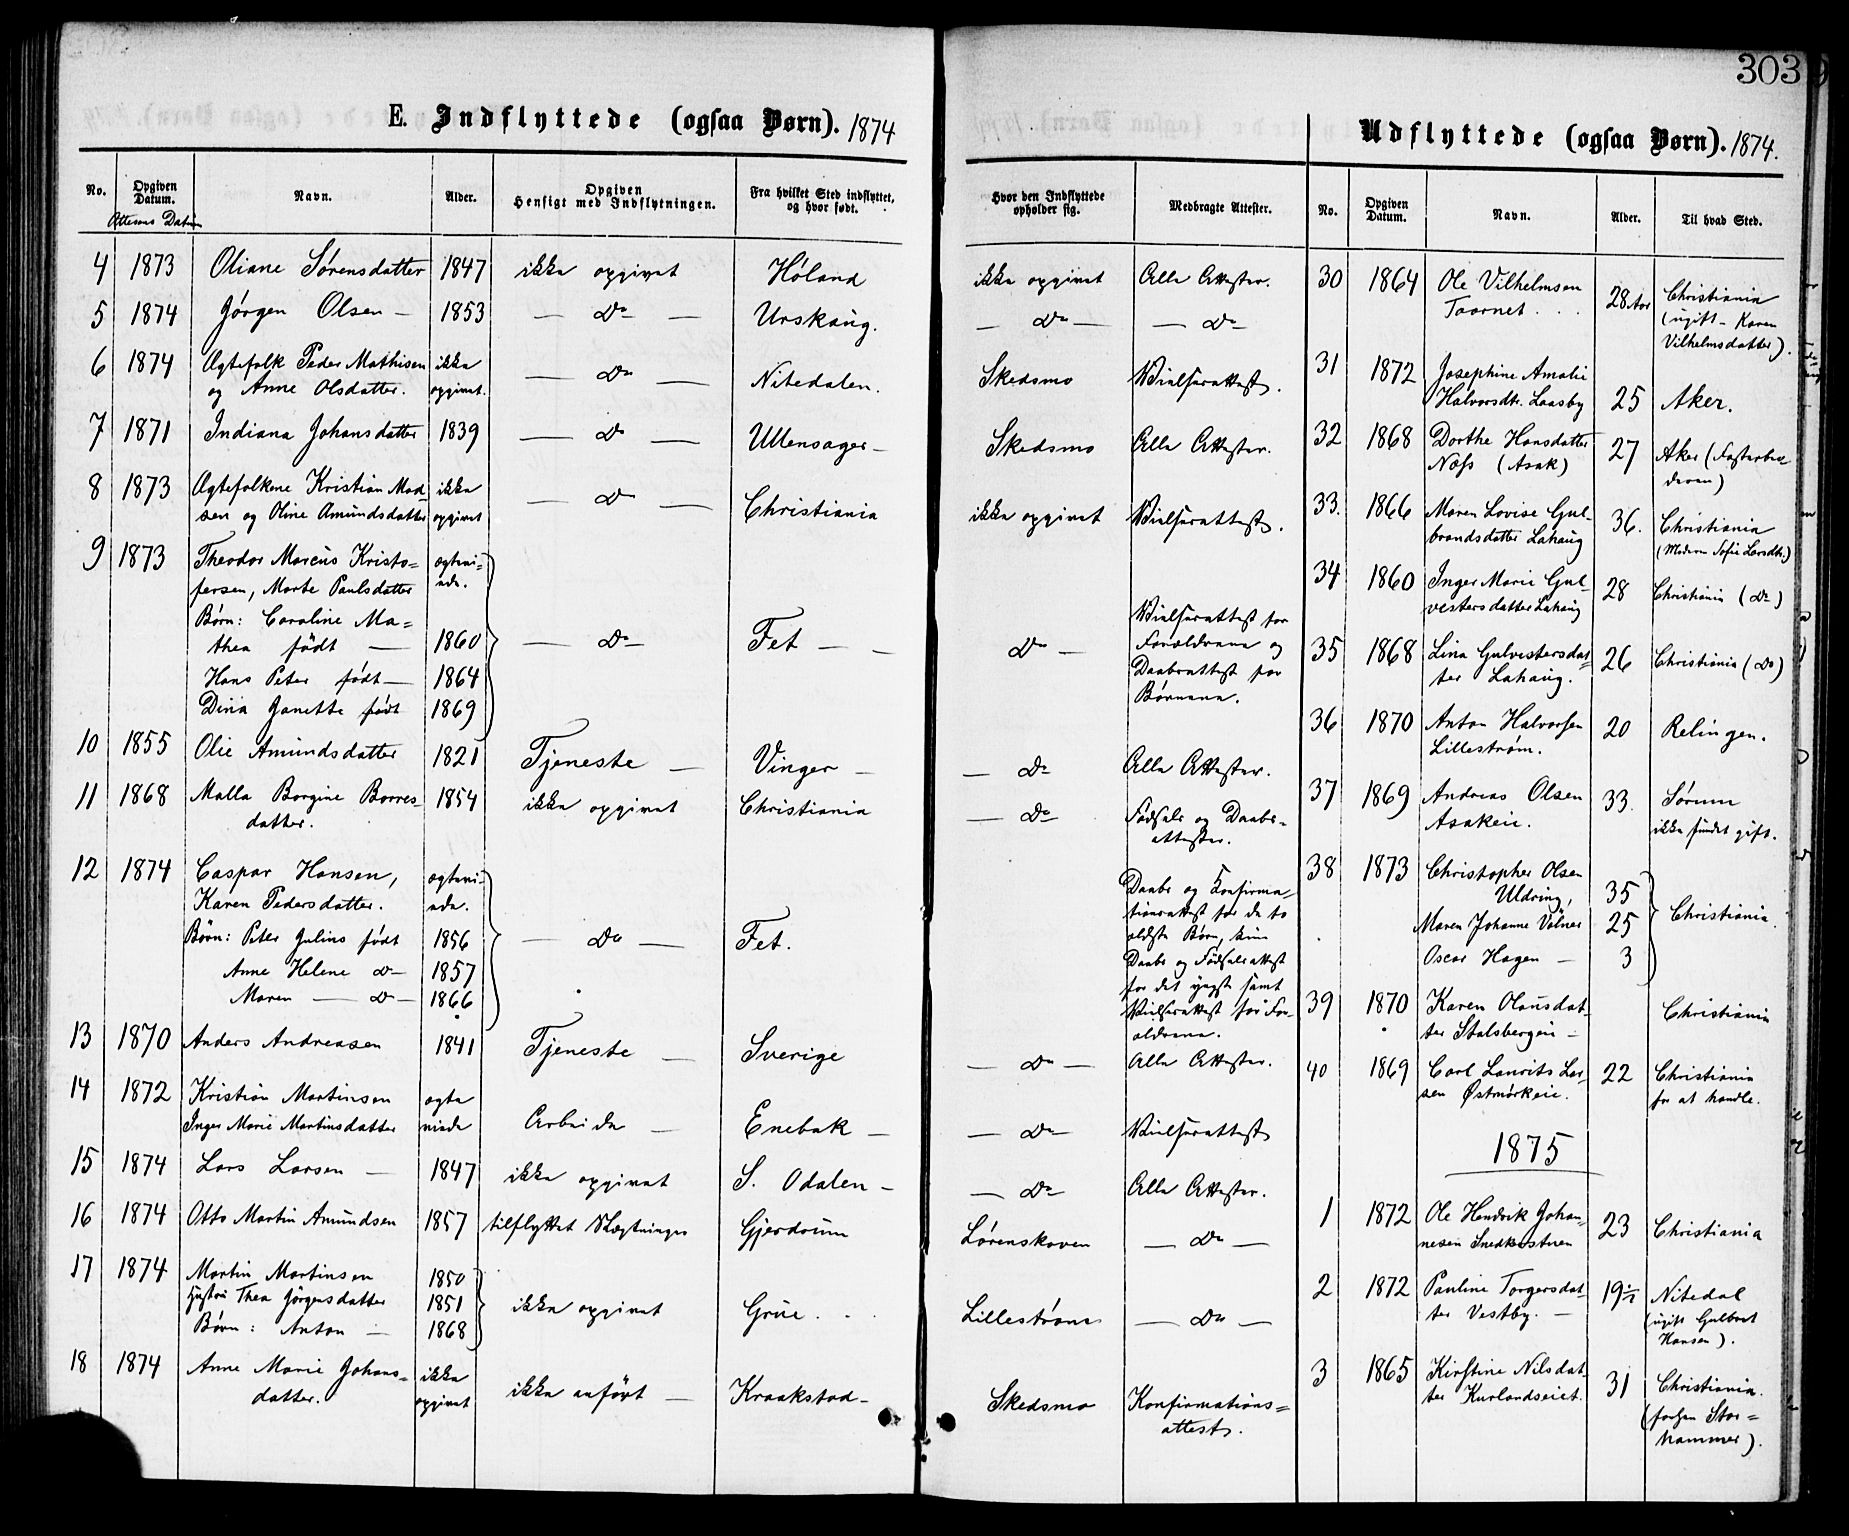 303
E. Indflyttede (ogsaa Børn). 1874
No.
Opgiven Datum.
Attestens Datum
Navn.
Alder.
Opgiven Hensigt med Indflytningen.
Fra hvilket Sted indflyttet, og hvor født.
Hvor den Indflyttede opholder sig.
Medbragte Attester.
4 1873 Oliane Sørensdatter 1847 ikke opgivet Høland ikke opgivet Alle Attester.
5 1874 Jørgen Olsen — 1853 — Do — Urskoug. — Do — — Do —
6 1874 Ægtefolk Peder Mathisen ikke — Do — Nitedalen. Skedsmo Vielsesattest.
og Anne Olsdatter. opgivet.
7 1871 Indiana Johansdatter 1839 — Do — Ullensager — Skedsmo Alle Attester.
8 1873 Ægtefolkene Kristian Mad- ikke — Do — Christiania ikke opgivet Vielsesattest.
sen og Oline Amundsdatter opgivet
9 1873 Theodor Marcus Kristo= ægtevi-
fersen, Marte Paulsdatter ede.
Børn: Caroline Ma=
thea født — 1860 — Do — Fet — — Do —
Hans Peter født — 1864
Dina Janette født 1869
Vielsesattest for
Forældrene og
Daabsattest for
Børnene.
10 1855 Olie Amundsdatter 1821 Tjeneste — Vinger — — Do Alle Attester.
11 1868 Malla Borgine Borres- 1854 ikke opgivet Christiania — Do Fødsels og Daabs-
datter. attester.
12 1874 Caspar Hansen, ægtevi-
Karen Pedersdatter. ede.
Børn: Peter Julius født 1856 — Do — Fet.
Anne Helene Do — 1857
Maren — Do — 1866
Daabs og Konfirma-
tionsattest for de to
ældste Børn, kun
Daabs og Fødselsattest
for det yngste samt
Vielsesattest for For-
ældrene.
13 1870 Anders Andreasen 1841 Tjeneste — Sverige — Do — Alle Attester.
14 1872 Kristian Martinsen ægte
Inger Marie Martinsdatter viede Arbeide — Enebak — — Do — Vielsesattest
15 1874 Lars Larsen — 1847 ikke opgivet S. Odalen — — Do Alle Attester.
16 1874 Otto Martin Amundsen 1857 tilflyttet Slægtninger Gjerdrum Lørenskoven — Do —
17 1874 Martin Martinsen 1850
Hustru Thea Jørgensdatter 1851 ikke opgivet Grue . . Lillestrøm — Do —
Børn: Anton — 1868
18 1874 Anne Marie Johans= ikke ikke anført — Kraakstad — Skedsmo Konfirmations=
datter. opgivet attest.
Udflyttede (ogsaa Børn). 1874.
No.
Opgiven Datum.
Navn.
Alder.
Til hvad Sted.
30 1864 Ole Vilhelmsen 28 Aar Christiania
Taarnet . . . (ugift — Karen
Vilhelmsdatter).
31 1872 Josephine Amalie
Halvorsdtr. Laasby 25 Aker.
32 1868 Dorthe Hansdatter 27 Aker (Fosterbro-
Næss (Asak) deren)
33. 1866 Maren Lovise Gul- 36. Christiania
brandsdatter Lahaug (Moderen Sofie Larsdtr.)
34 1860 Inger Marie Gul- 28 Christiania (Do)
vestersdatter Lahaug
35 1868 Lina Gulvestersdat- 26 Christiania (Do)
ter Lahaug.
36 1870 Anton Halvorsen 20 Relingen.
Lillestrøm.
37 1869 Andreas Olsen 33. Sørum
Asakeie. ikke fundet gift.
38 1873 Christopher Olsen
Uldring, 35
Maren Johanne Volner 25 Christiania
Oscar Hagen — 3
39 1870 Karen Olausdat- Christiania
ter Stalsbergeie —
40 1869 Carl Laurits Lar- 22 Christiania
sen Østmørkeie. for at handle.
1875
1 1872 Ole Hendrik Johan- 23 Christiania
nesen Snedkerstuen
2 1872 Pauline Torgersdat- 19½ Nitedal
ter Vestby. — (ugift Gulbrat
Hansen).
3 1865 Kirstine Nilsdat- 31 Christiania.
ter Kurlandseiet. (forhen Stor=
hammer).